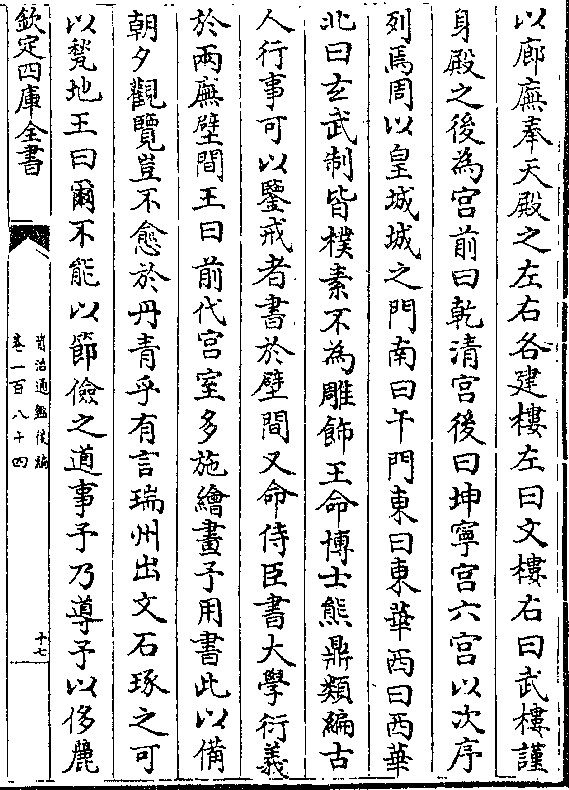 以廊廡奉天殿之左右各建樓左曰文樓右曰武樓謹
身殿之後為宫前曰乾清宫後曰坤寧宫六宫以次序
列焉周以皇城城之門南曰午門東曰東華西曰西華
北曰玄武制皆樸素不為雕飾王命博士熊鼎類編古
人行事可以鑒戒者書於壁間又命侍臣書大學衍義
於兩廡壁間王曰前代宫室多施繪畫予用書此以備
朝夕觀覽豈不愈於丹青乎有言瑞州出文石琢之可
以甃地王曰爾不能以節儉之道事予乃導予以侈麗
欽定四庫全書
資治通鑑後編
卷一百八十四
十七